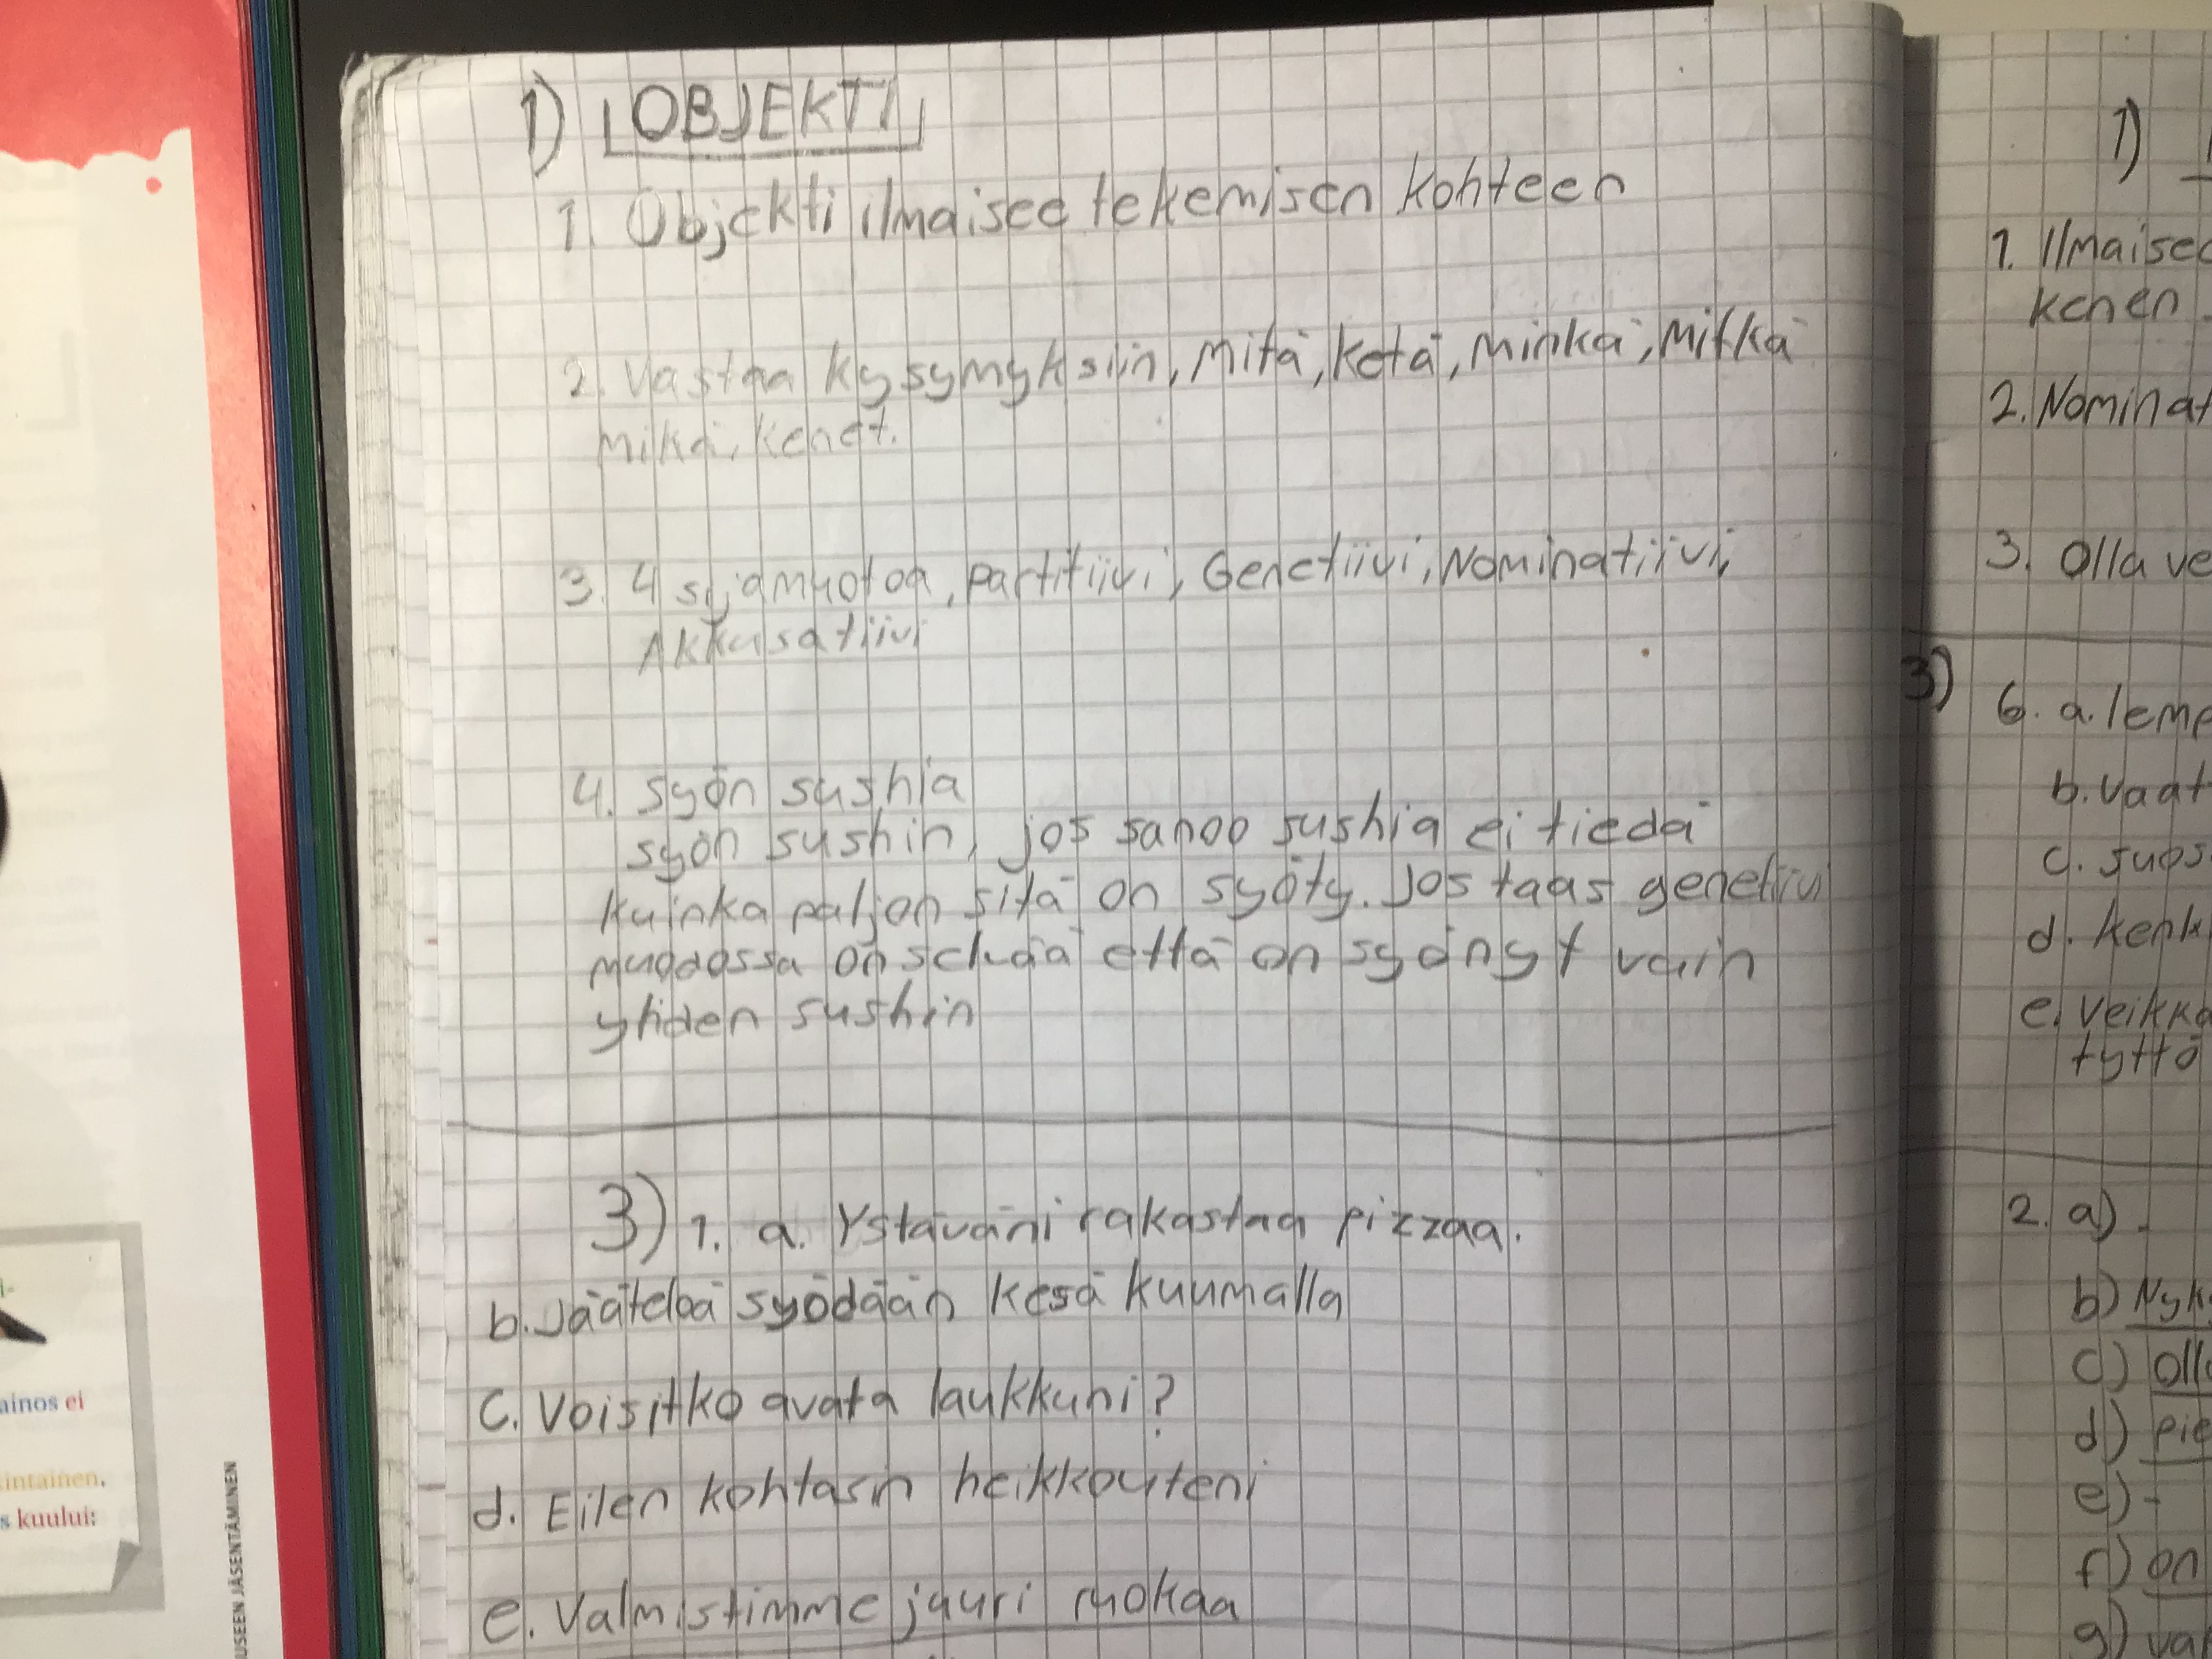 1) OBJEKTI
1. Objekti ilmaisee tekemisen kohteen
2. Vastaa kysymyksiin, Mitä, Ketä, Minkä, Mitkä
mikä, Kenet.
3. 4 sijamuotoa, partitiivi, Genetiivi, Nominatiivi,
Akkusatiivi
4. Syön sushia
syön sushin, jos sanoo sushia ei tiedä
kuinka paljon sitä on syöty. Jos taas genetiivi
muodossa on selvää että on syönyt vain
yhden sushin
3) 1. a. Ystäväni rakastaa pizzaa.
b. Jäätelöä syödään kesä kuumalla
C. Voisitko avata laukkuni?
d. Eilen kohtasin heikkouteni
e. Valmistimme juuri ruokaa
1)
1. Ilmaisee
kenen
2. Nominat
3. Olla ve
3) 6. a. lemp
b. vaat
c. suos
d. kenk
e. veikka
tyttö
2. a) -
b) Nyk
c) oll
d) pie
e) -
f) on
g) va
ainos ei
intainen.
s kuului:
USEEN JÄSENTÄMINEN